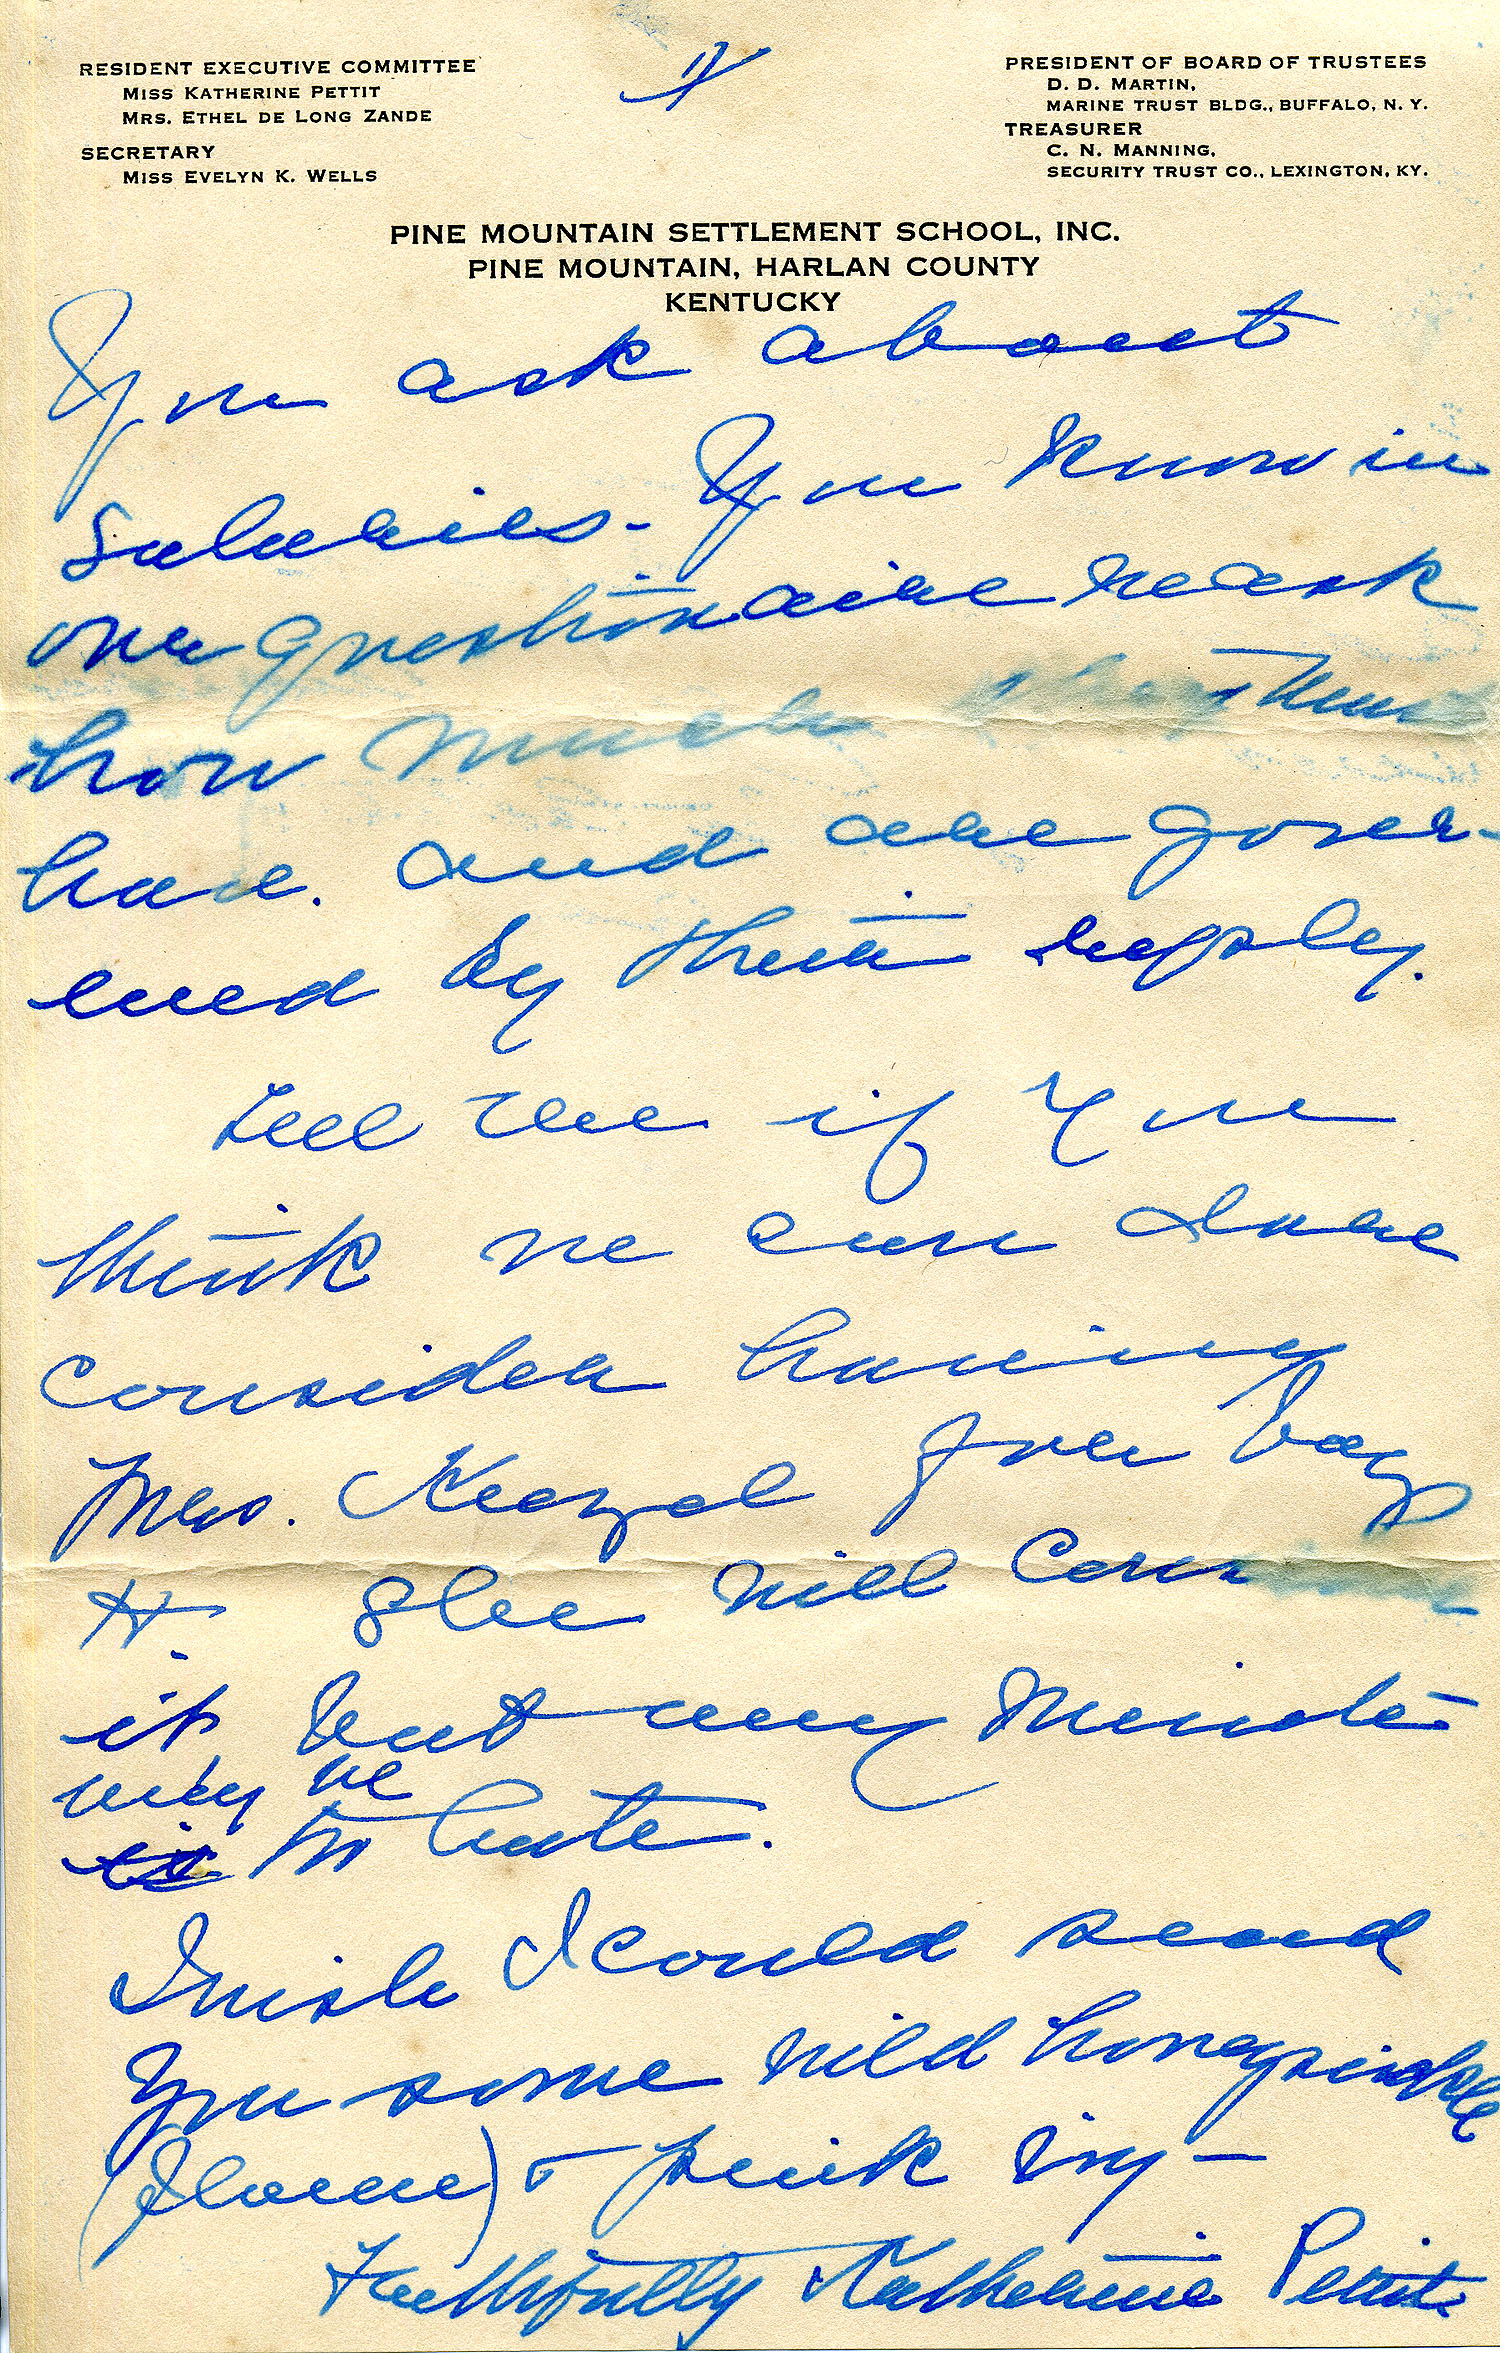 RESIDENT EXECUTIVE COMMITTEE
MISS KATHERINE PETTIT
MRS. ETHEL DE LONG ZANDE
SECRETARY
MISS EVELYN K. WELLS
PRESIDENT OF BOARD OF TRUSTEES
D. D. MARTIN,
MARINE TRUST BLDG., BUFFALO, N. Y.
TREASURER
C. N. MANNING,
SECURITY TRUST CO., LEXINGTON, KY.
PINE MOUNTAIN SETTLEMENT SCHOOL, INC.
PINE MOUNTAIN, HARLAN COUNTY
KENTUCKY
You ask about
salaries- You know in
our questionaire we ask
how much they must
have. and are gover-
ned by their reply.
Tell me if you
think we can dare
consider having
Mrs. for Boys
H. She will
it but my
may be
is too late.
I wish I could send
you some wild honeysuckle
(flame) & pink ivy-
Faithfully Katherine Pettit